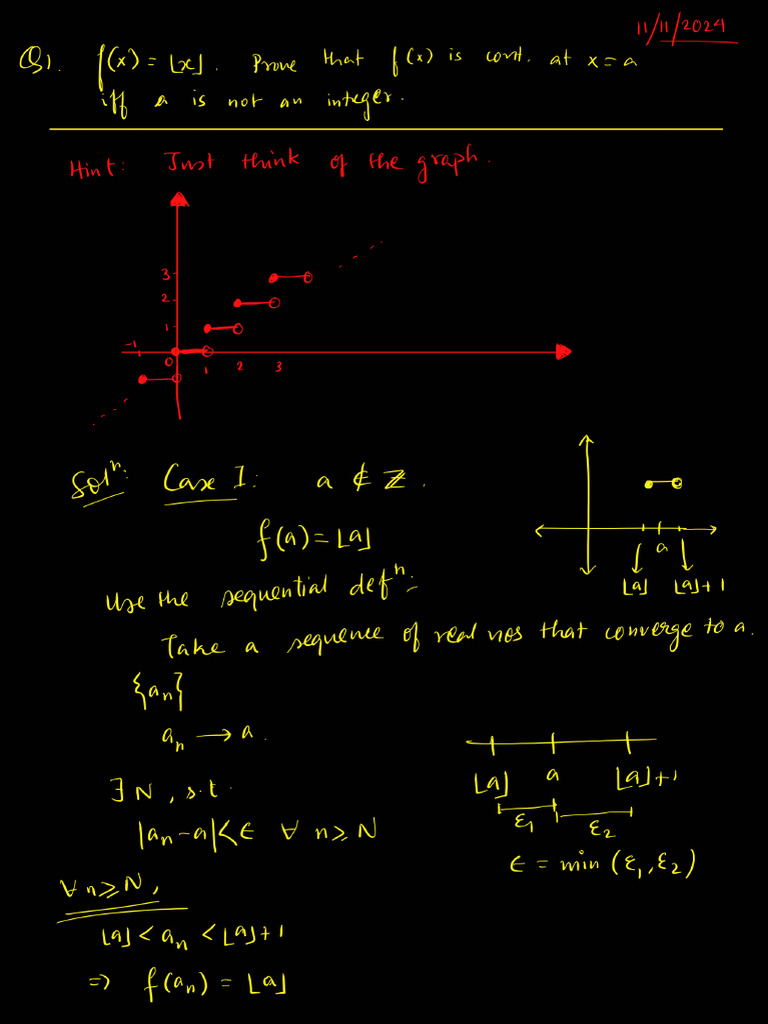 11/11/2024
Q1. f(x) = ⌊x⌋. Prove that f(x) is cont. at x = a
iff a is not an integer.
Hint: Just think of the graph.
3
2
1
-1
0 1 2 3
Solⁿ: Case I: a ∉ ℤ.
f(a) = ⌊a⌋
a
⌊a⌋ ⌊a⌋+1
Use the sequential defⁿ:
Take a sequence of real nos that converge to a.
{aₙ}
aₙ → a.
⌊a⌋ a ⌊a⌋+1
ε₁ ε₂
ϵ = min (ε₁, ε₂)
∃ N, s.t.
|aₙ-a| < ϵ ∀ n ≥ N
∀ n ≥ N,
⌊a⌋ < aₙ < ⌊a⌋+1
⇒ f(aₙ) = ⌊a⌋